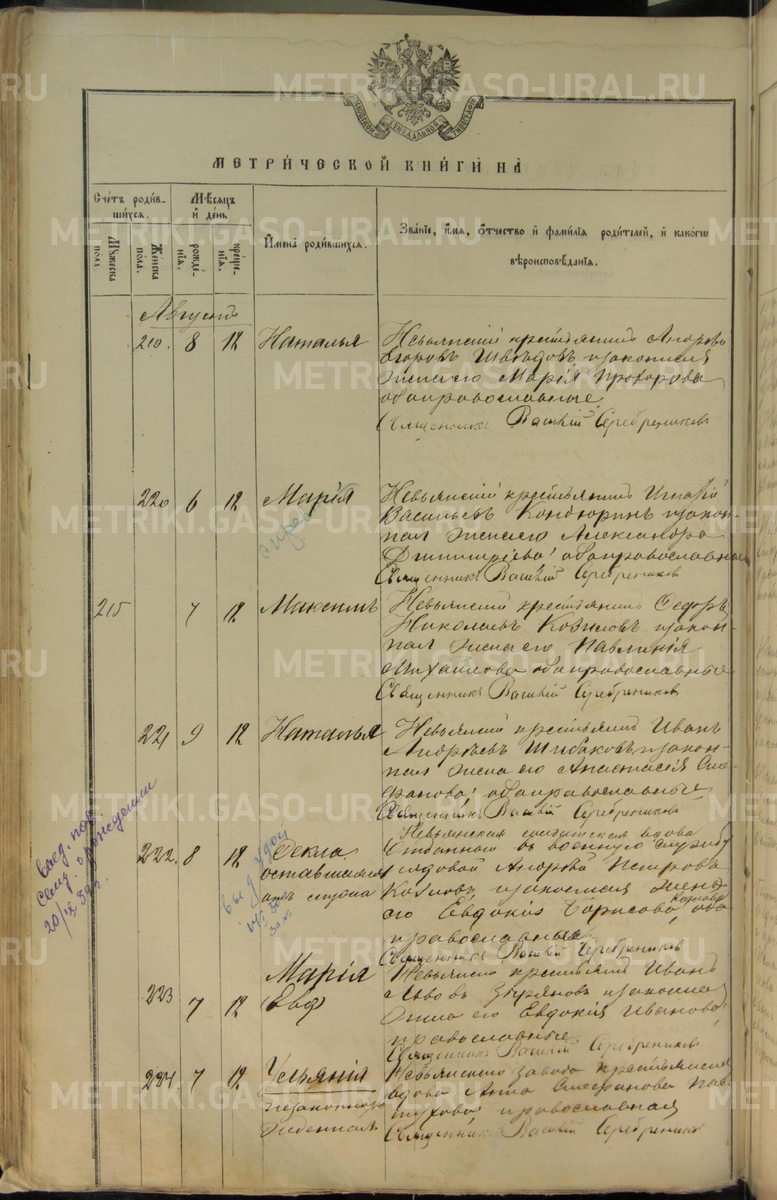 МЕТРИ́ЧЕСКОЙ КНИ́ГИ НА̀
Счётъ роди́в-
шихся.
Му́жеска
по́ла
Же́нска
по́ла.
Мѣ́сяцъ
и де́нь
рожде́-
нїѧ.
креще́-
нїѧ.
И҆мена̀ роди́вшихся.
Зва́нїе, и҆́мѧ, ѻ҆́тчество и҆ фами́лїѧ роди́телей, и҆ како́гѡ
вѣроисповѣ́данїѧ.
Августъ
219. 8 12 Наталья
Невьянскій крестьянинъ Андрей
Егоровъ Шведовъ и законная
жена его Марія Прохорова
оба православные
Священникъ Василій Серебрениковъ
220 6 12 Марія
Невьянскій крестьянинъ Игнатій
Васильевъ Кондюринъ и закон-
ная жена его Александра
Димитріева оба православные
Священникъ Василій Серебрениковъ
215 7 12 Максимъ
Невьянскій крестьянинъ Федоръ
Николаевъ и закон-
ная жена его Павлинія
Михайлова оба православные
Священникъ Василій Серебрениковъ
221 9 12 Наталья
Невьянскій крестьянинъ Иванъ
Андреевъ Шибаковъ и закон-
ная жена его Анастасія Сте-
фанова оба православные
Священникъ Василій Серебрениковъ
222. 8 12 Фекла
Невьянская солдатская вдова
въ военную службу
рядовой Андрей Петровъ
Козловъ и законная жена
его Евдокія Борисова, оба
православные
Священникъ Василій Серебрениковъ
223 7 12 Марія
Евф
Невьянскій крестьянинъ Иванъ
Львовъ Зыряновъ и законная
жена его Евдокія Иванова
православные.
Священникъ Василій Серебрениковъ
224. 7 12 Ульянія
незаконнорож-
денная
Невьянскаго завода крестьянская
вдова Анна Стефанова Пас-
тухова православная
Священникъ Василій Серебрениковъ
METRIKI.GASO-URAL.RU